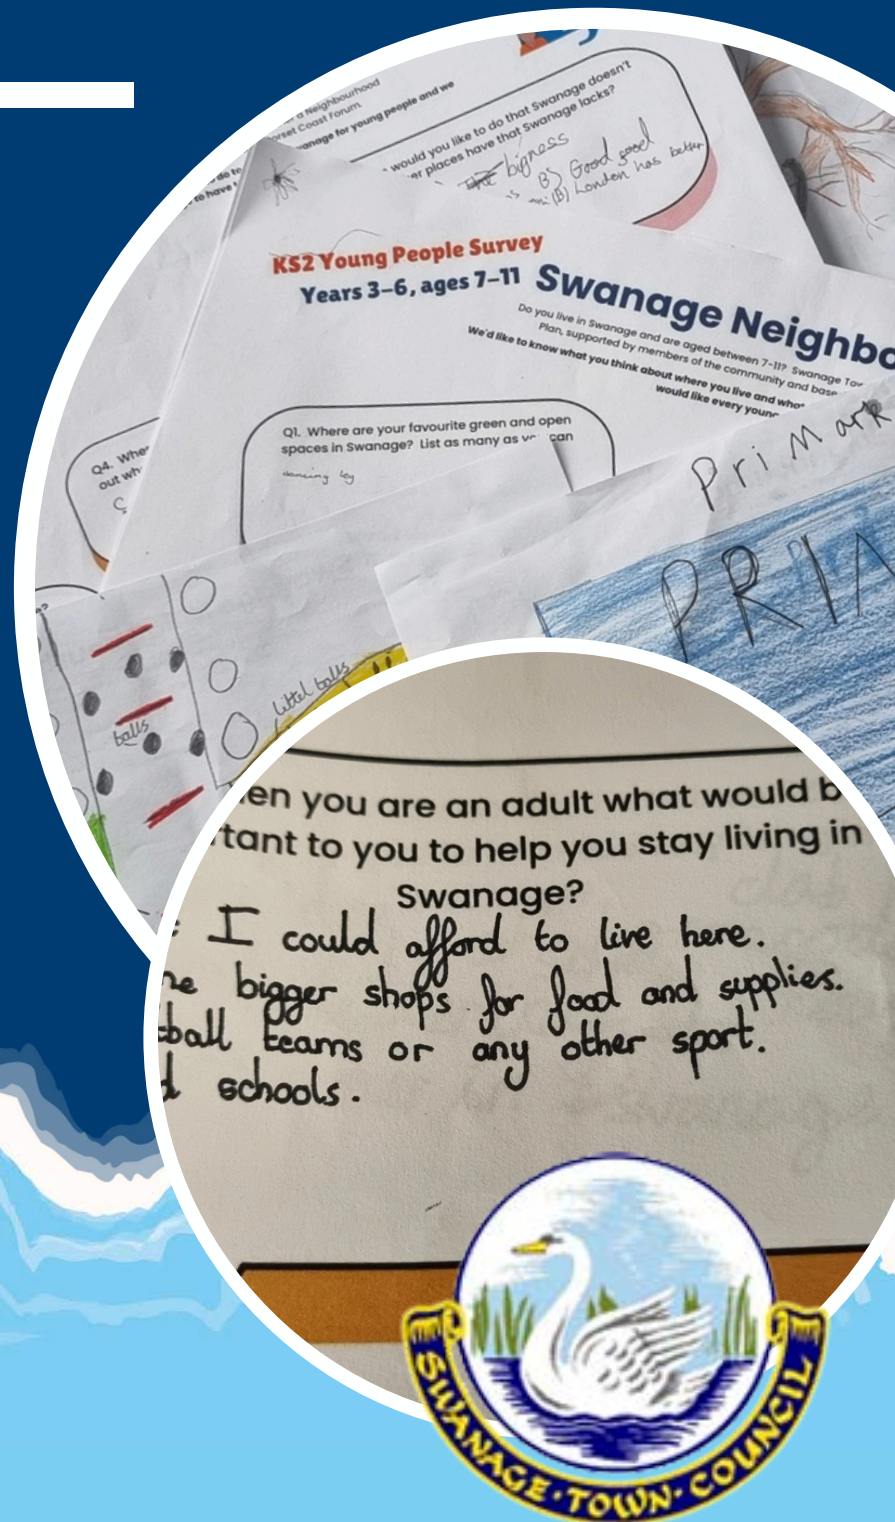 a Neighbourhood
orset Coast Forum.
anage for young people and we
do to
to have
would you like to do that Swanage doesn't
er places have that Swanage lacks?
bigness
B) Good
(B) London has better
KS2 Young People Survey
Years 3–6, ages 7–11
Swanage Neighbo
Do you live in Swanage and are aged between 7-11? Swanage Tow
Plan, supported by members of the community and base
We'd like to know what you think about where you live and what
would like every young
Q1. Where are your favourite green and open
spaces in Swanage? List as many as you can
dancing leg
Q4. Whe
out wh
PriMark
PRIM
littel balls
balls
en you are an adult what would b
tant to you to help you stay living in
Swanage?
I could afford to live here.
e bigger shops for food and supplies.
tball teams or any other sport.
d schools.
SWANAGE · TOWN · COUNCIL